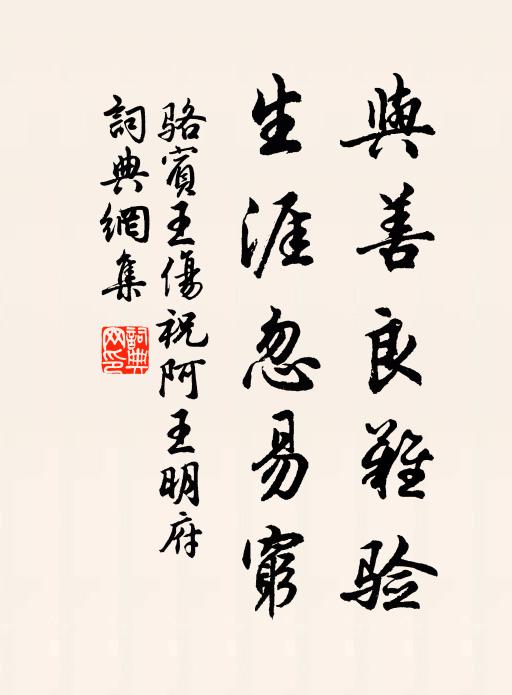 與善良難验
生涯忽易窮
骆賓王傷祝阿王明府
詞典網集
詞典网印